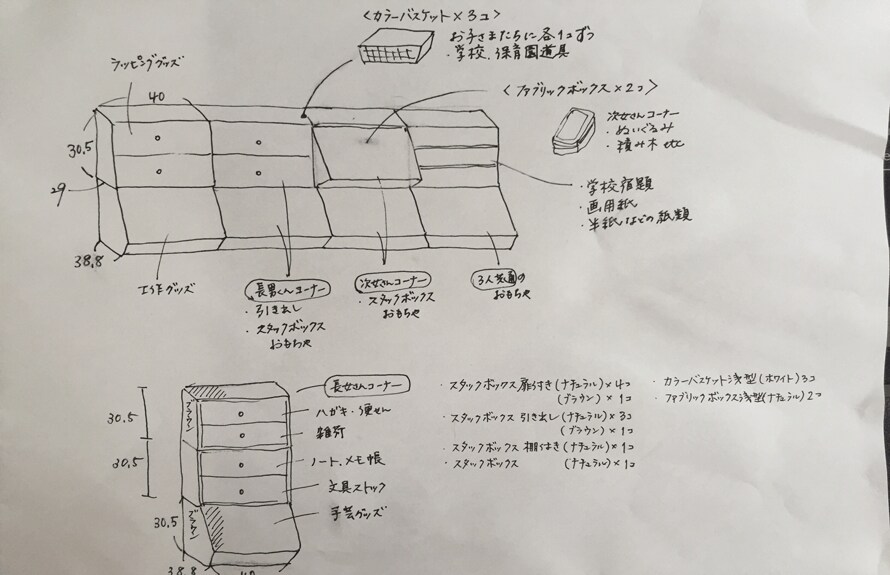 ＜カラーバスケット×３コ＞
お子さまたちに各１コずつ
・学校、保育園道具
ラッピンググッズ
＜ファブリックボックス×２コ＞
40
次女さんコーナー
・ぬいぐるみ
・積み木 etc
30.5
29
・学校宿題
・画用紙
・半紙などの紙類
38.8
工作グッズ
長男くんコーナー
・引き出し
・スタックボックス
おもちゃ
次女さんコーナー
・スタックボックス
おもちゃ
3人共通の
おもちゃ
長女さんコーナー
ブラウン
30.5
ハガキ・便せん
雑貨
30.5
ノート、メモ帳
文具ストック
ブラウン
30.5
手芸グッズ
38.8
40
・スタックボックス 扉付き（ナチュラル）×4コ
（ブラウン）×1コ
・スタックボックス 引き出し（ナチュラル）×3コ
（ブラウン）×1コ
・スタックボックス 棚付き（ナチュラル）×1コ
・スタックボックス （ナチュラル）×1コ
・カラーバスケット浅型（ホワイト）3コ
・ファブリックボックス浅型（ナチュラル）2コ